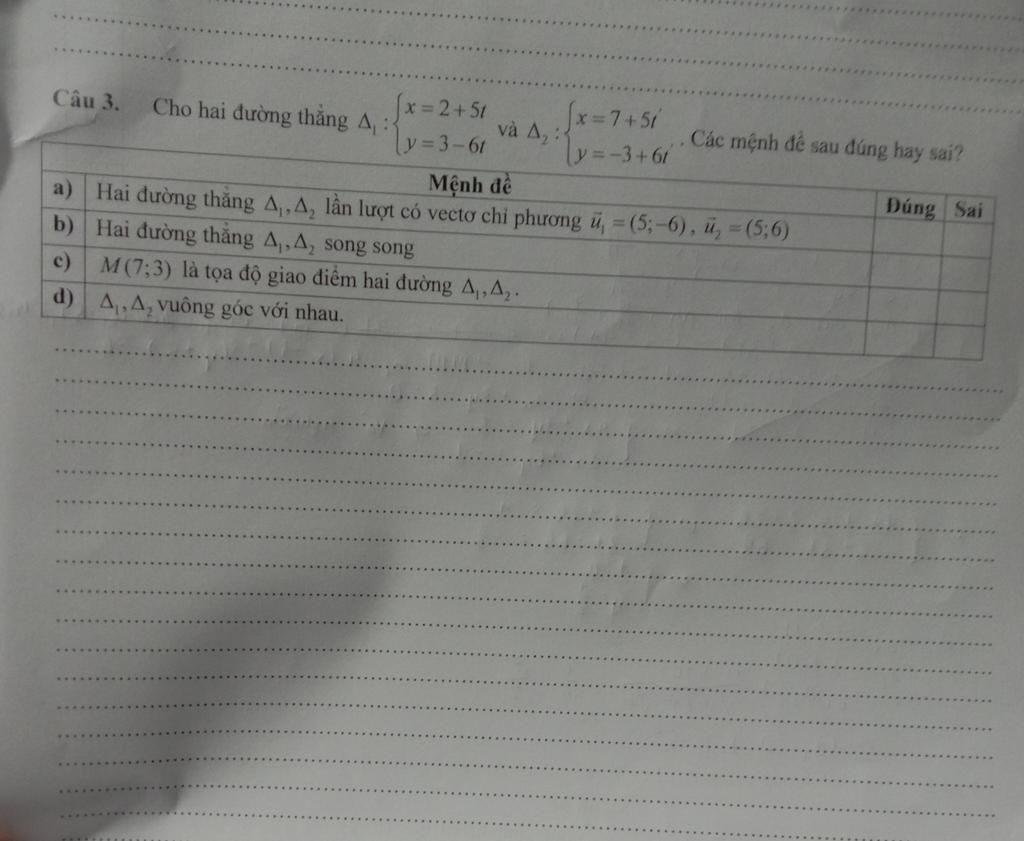 Câu 3. Cho hai đường thẳng Δ₁ : { x = 2 + 5t y = 3 − 6t và Δ₂ : { x = 7 + 5t' y = −3 + 6t' . Các mệnh đề sau đúng hay sai?
Mệnh đề Đúng Sai
a) Hai đường thẳng Δ₁, Δ₂ lần lượt có vectơ chỉ phương u⃗₁ = (5;−6), u⃗₂ = (5;6)
b) Hai đường thẳng Δ₁, Δ₂ song song
c) M(7;3) là tọa độ giao điểm hai đường Δ₁, Δ₂.
d) Δ₁, Δ₂ vuông góc với nhau.